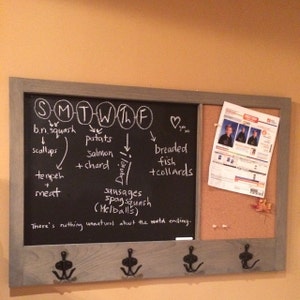 S M T W Th F
b.n. squash
scallops
tempeh
+
meat
potats
salmon
+ chard
Daniel!
sausages
spag squash
(Mc Balls)
breaded
fish
+ collards
There's nothing unnatural about the world ending.